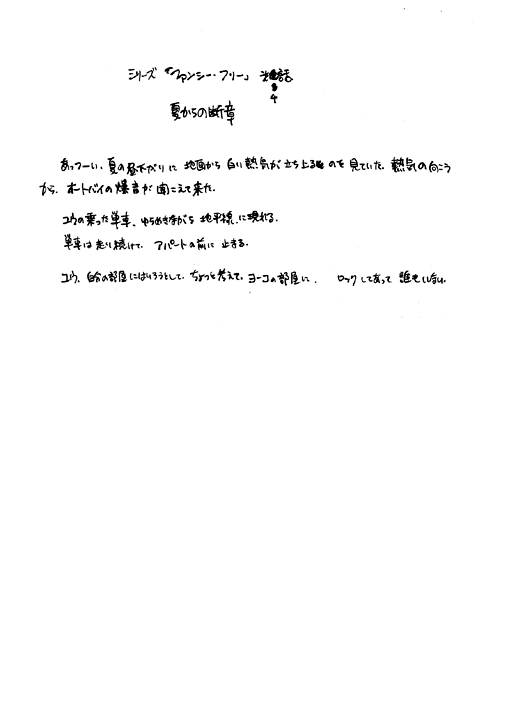 シリーズ「ファンシー・フリー」 話
4
夏からの断章
あっつーい、夏の昼下がりに 地面から 白い熱気が立ち上るのを 見ていた。熱気の向こう
から、オートバイの爆音が 聞こえて来た。
ユウの乗った単車、ゆらめきながら 地平線に現れる。
単車は走り続けて、アパートの前に 止まる。
ユウ、自分の部屋にはいろうとして、ちょっと考えて、ヨーコの部屋に、 ロックしてあって 誰もいない。